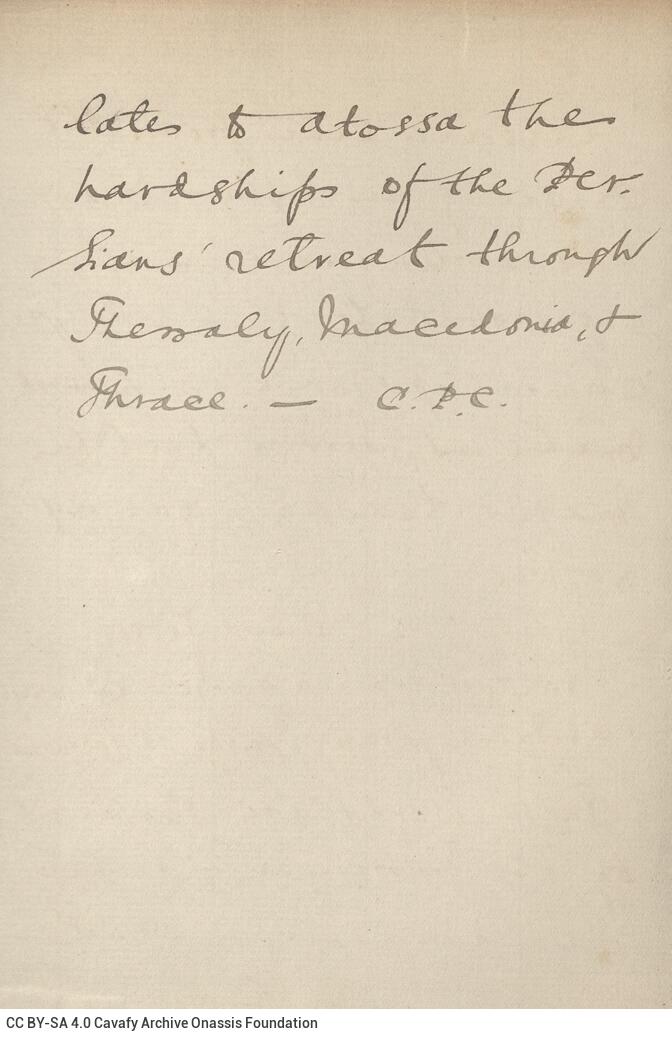 lates to Atossa the
hardships of the Per-
sians' retreat through
Thessaly, Macedonia, &
Thrace. — C.P.C.
CC BY-SA 4.0 Cavafy Archive Onassis Foundation